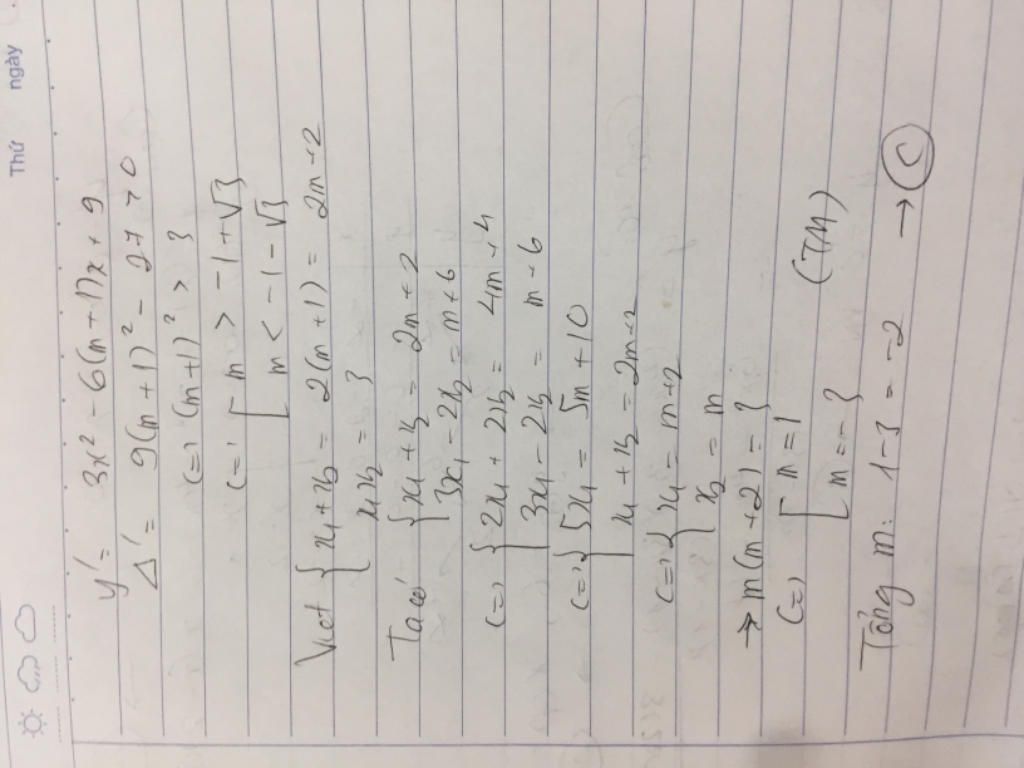 Thứ ngày
y' = 3x² - 6(m+1)x + 9
Δ' = 9(m+1)² - 27 > 0
(=) (m+1)² > 3
(=) [ m > -1+√3
m < -1-√3
Viet { x₁+x₂ = 2(m+1) = 2m+2
x₁x₂ = 3
Ta có { x₁+x₂ = 2m+2
3x₁ - 2x₂ = m+6
(=) { 2x₁ + 2x₂ = 4m+4
3x₁ - 2x₂ = m+6
(=) { 5x₁ = 5m+10
x₁+x₂ = 2m+2
(=) { x₁ = m+2
x₂ = m
→ m(m+2) = 3
(=) [ m=1
m=-3 (TM)
Tổng m: 1-3 = -2 → C